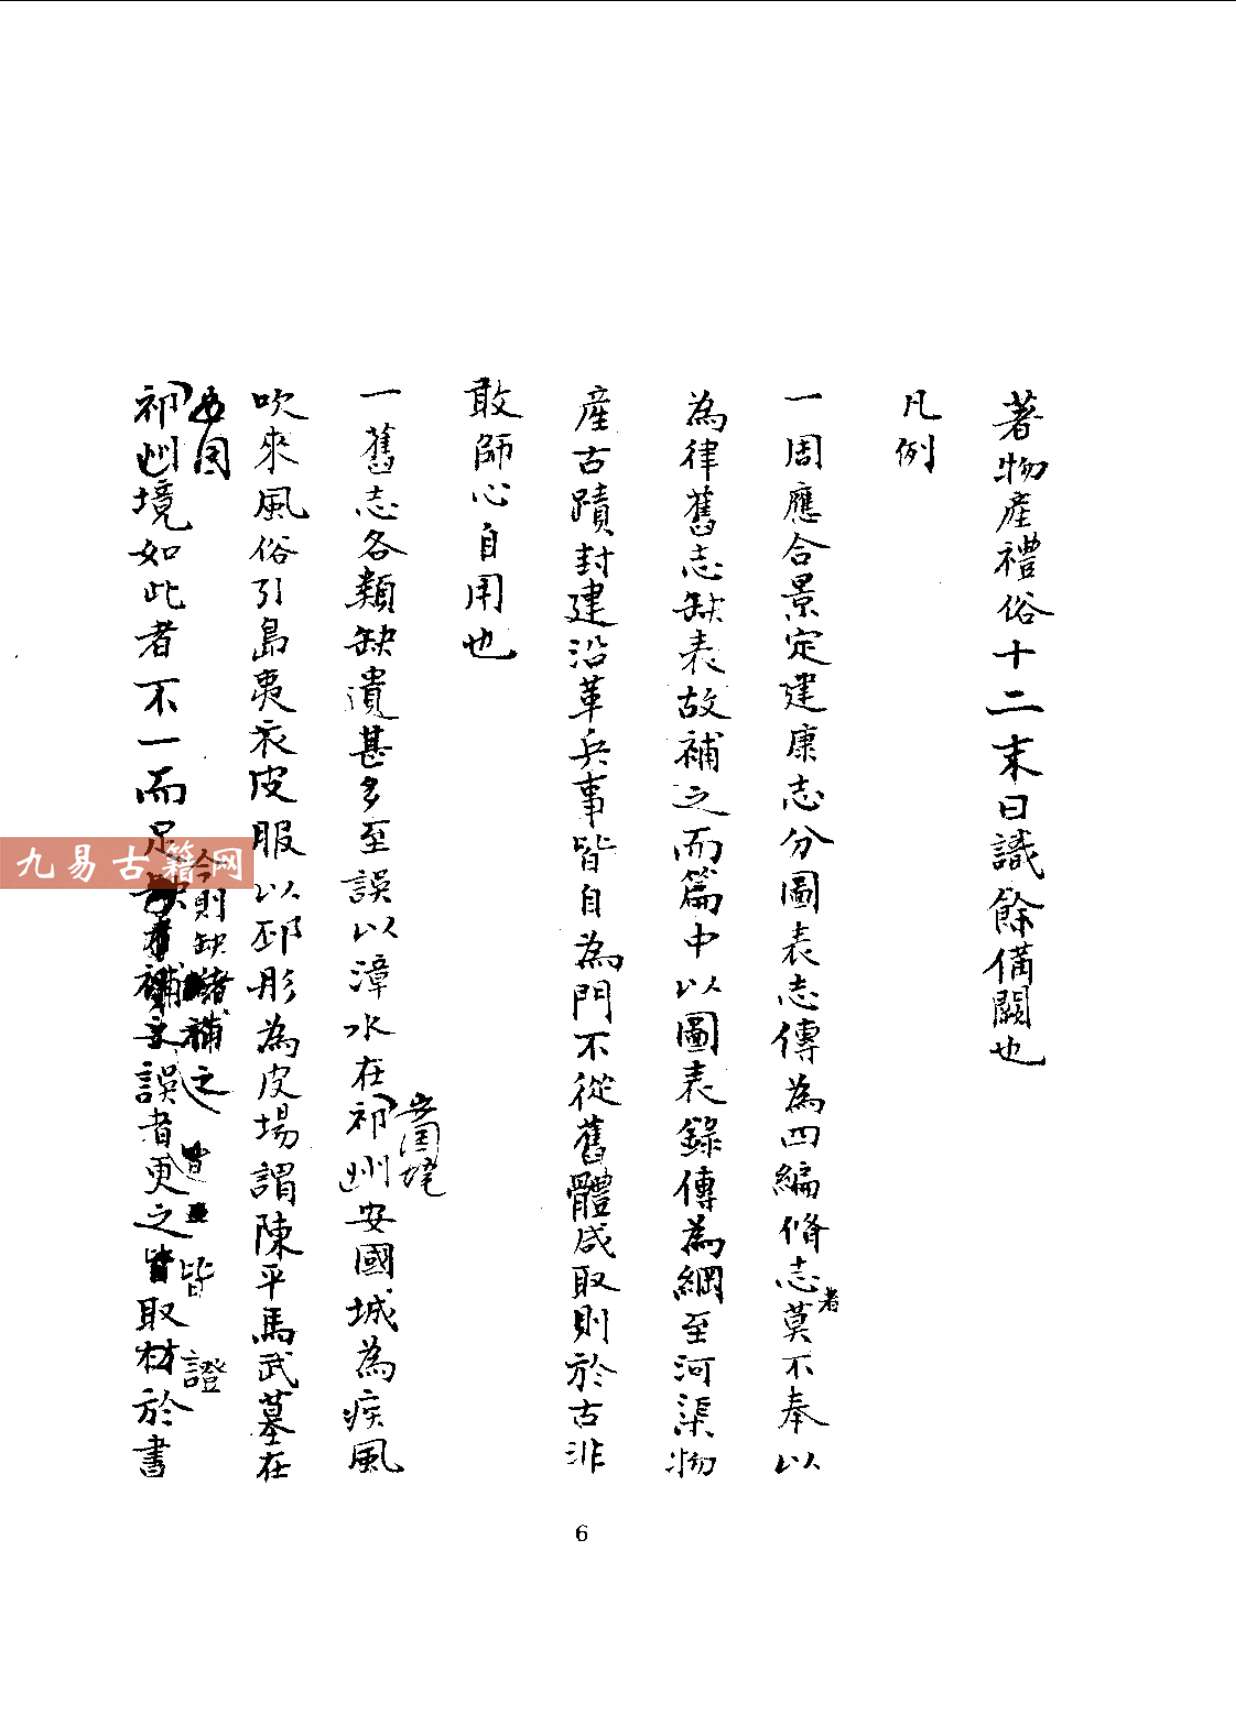 著物產禮俗十二末曰識餘備闕也
凡例
一周應合景定建康志分圖表志傳為四編脩志者莫不奉以
為律舊志缺表故補之而篇中以圖表錄傳為綱至河渠物
產古蹟封建沿革兵事皆自為門不從舊體咸取則於古非
敢師心自用也
安國境
一舊志各類缺遺甚多至誤以漳水在祁州安國城為疾風
吹來風俗引島夷衣皮服以邳彤為皮場謂陳平馬武墓在
安国
今則缺者補之
皆
證
祁州境如此者不一而足
誤者更之皆取材於書
九易古籍网
6